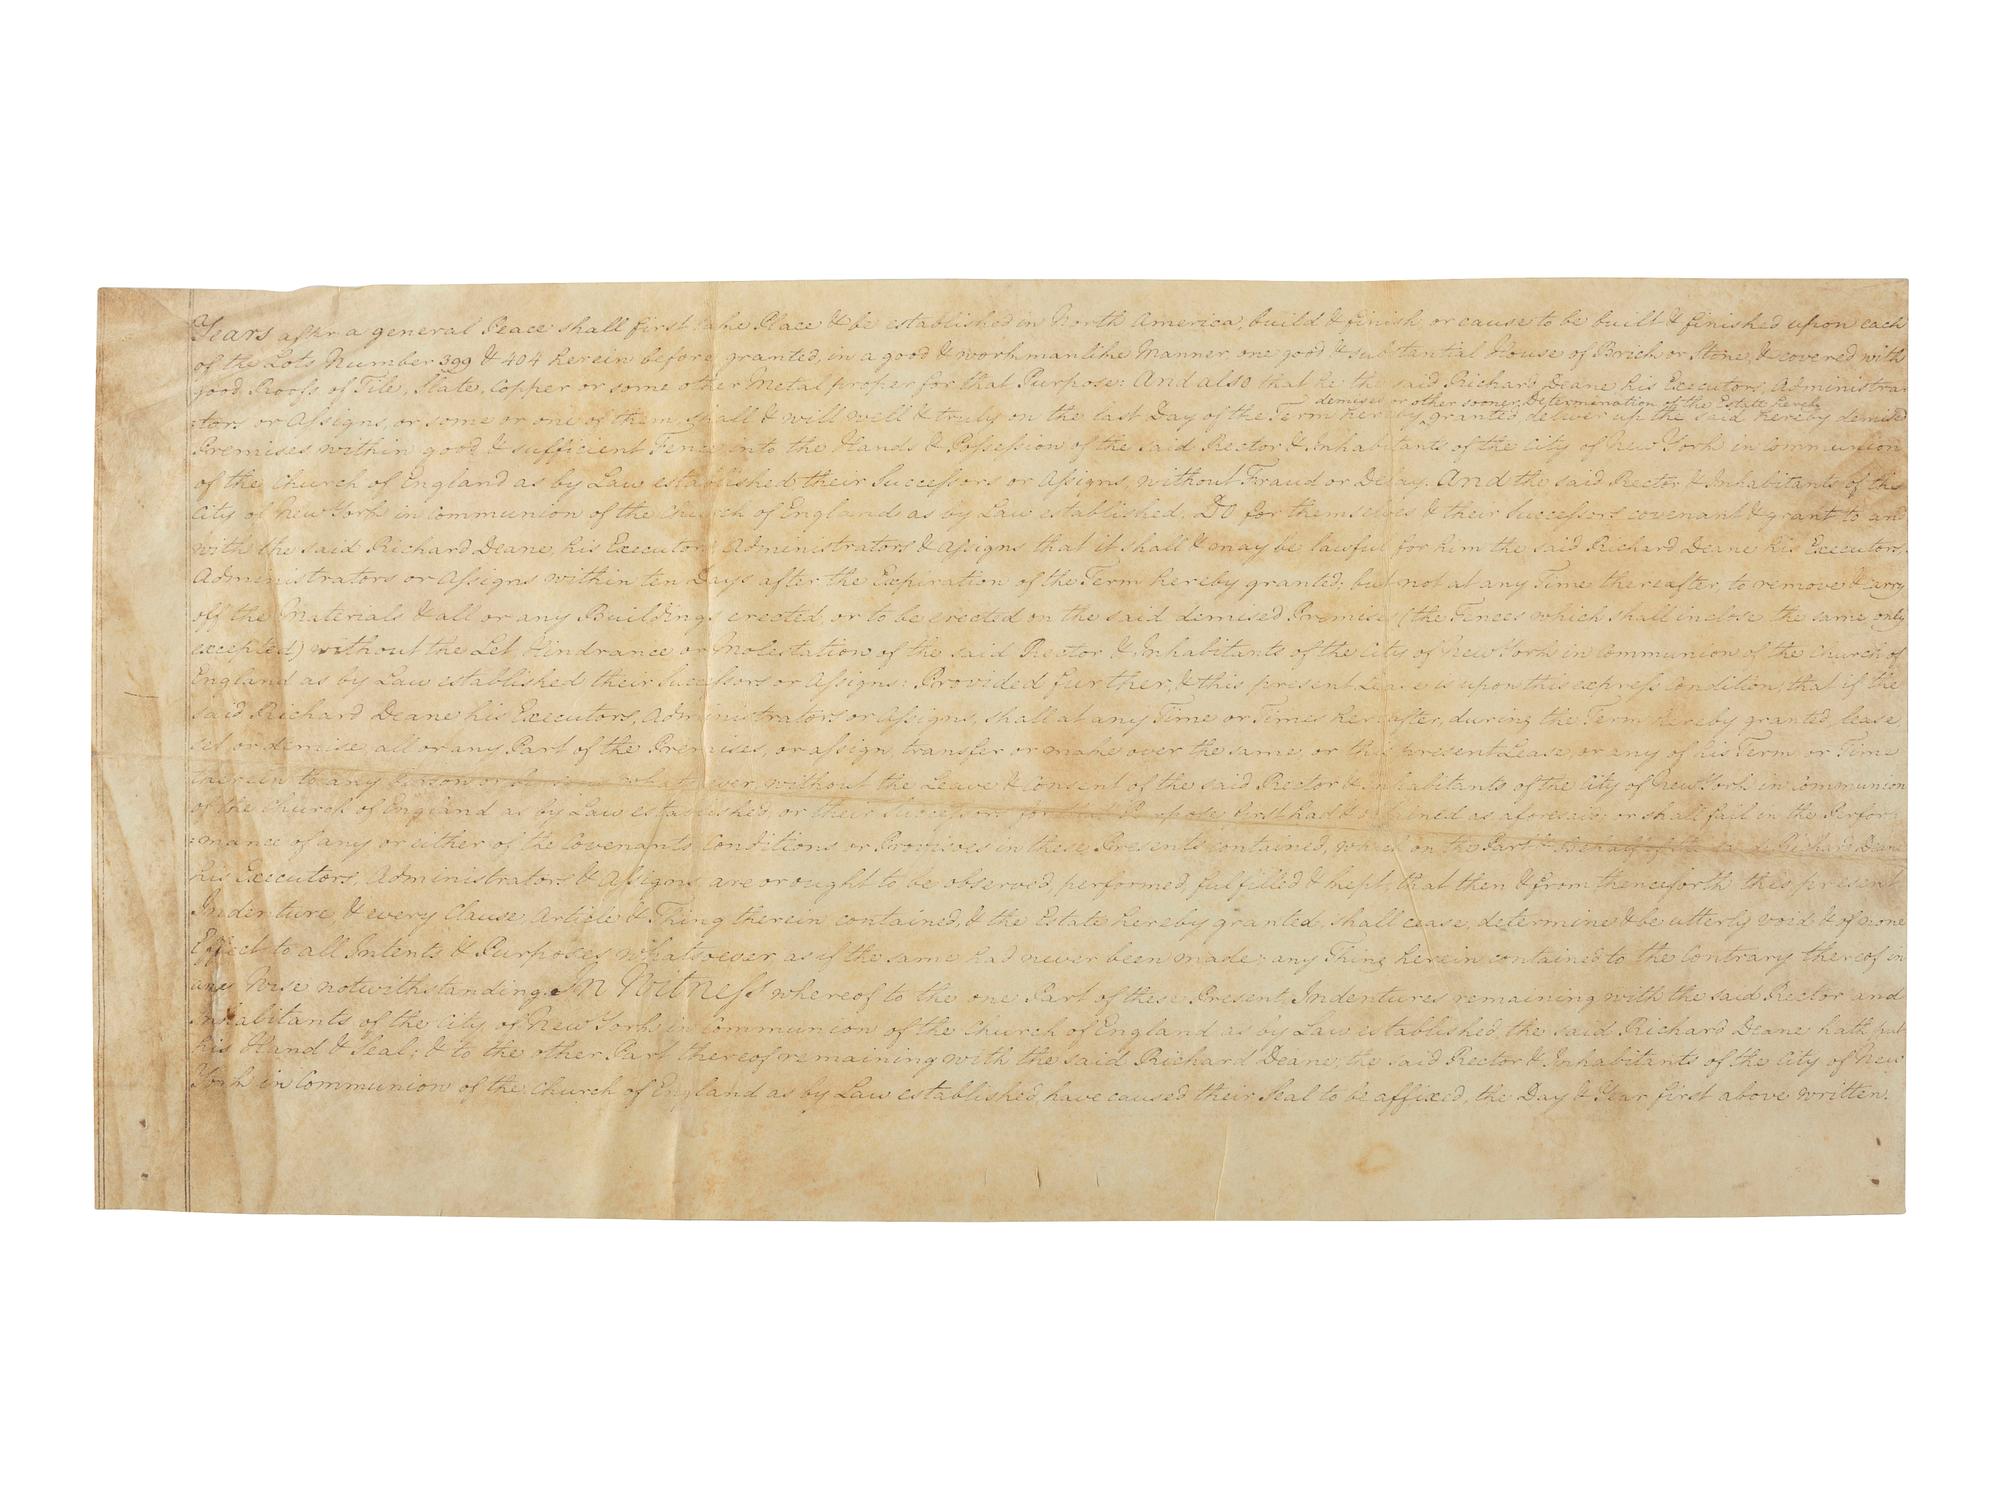 Years after a general Peace shall first take Place & be established in North America, build & finish or cause to be built & finished upon each
of the Lots Number 399 & 404 herein before granted, in a good & workmanlike Manner, one good & substantial House of Brick or Stone, & covered with
good Roofs of Tile, Slate, Copper or some other Metal proper for that Purpose: And also that he the said Richard Deane his Executors, Administra-
demises or other sooner Determination of the Estate hereby
:tors or Assigns, or some or one of them, shall & will well & truly on the last Day of the Term hereby granted deliver up the said hereby demised
Premises within good & sufficient Fence into the Hands & Possession of the said Rector & Inhabitants of the City of New York in Communion
of the Church of England as by Law established their Successors or Assigns, without Fraud or Delay. And the said Rector & Inhabitants of the
City of New York in Communion of the Church of England as by Law established, Do for themselves & their Successors covenant & grant to and
with the said Richard Deane, his Executors Administrators & Assigns that it shall & may be lawful for him the said Richard Deane his Executors,
Administrators or Assigns within ten Days after the Expiration of the Term hereby granted; but not at any Time thereafter, to remove & carry
off the Materials & all or any Buildings erected, or to be erected on the said demised Premises (the Fences which shall inclose the same only
excepted) without the Let Hindrance or Molestation of the said Rector & Inhabitants of the City of New York in Communion of the Church of
England as by Law established their Successors or Assigns: Provided further, & this present Lease is upon this express Condition, that if the
said Richard Deane his Executors, Administrators or Assigns, shall at any Time or Times hereafter, during the Term hereby granted, lease,
set or demise, all or any Part of the Premises, or assign, transfer or make over the same, or this present Lease, or any of his Term or Time
therein to any Person or Persons whatsoever, without the Leave & Consent of the said Rector & Inhabitants of the City of New York in Communion
of the Church of England as by Law established, or their Successors for that Purpose first had & obtained as aforesaid; or shall fail in the Perfor-
:mance of any or either of the Covenants Conditions or Provisoes in these Presents contained, which on the Part & Behalf of the said Richard Deane
his Executors, Administrators & Assigns, are or ought to be observed, performed, fulfilled & kept; that then & from thenceforth this present
Indenture, & every Clause, Article & Thing therein contained, & the Estate hereby granted, shall cease, determine & be utterly void & of none
Effect to all Intents & Purposes whatsoever, as if the same had never been made; any Thing herein contained to the Contrary thereof in
any Wise notwithstanding. In Witness whereof to the one Part of these Present Indentures remaining with the said Rector and
Inhabitants of the City of New York in Communion of the Church of England as by Law established, the said Richard Deane hath put
his Hand & Seal; & to the other Part thereof remaining with the said Richard Deane, the said Rector & Inhabitants of the City of New
York in Communion of the Church of England as by Law established, have caused their Seal to be affixed, the Day & Year first above written.